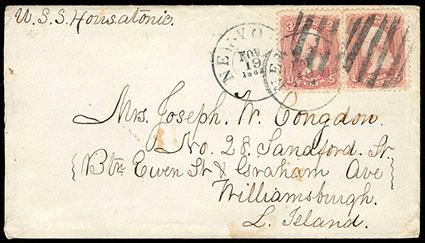 U.S.S. Housatonic.
NEW YO
NOV
19
Mrs. Joseph W. Congdon
No. 28. Sandford St.
{Btn Ewen St & Graham Ave}
Williamsburgh.
L. Island.